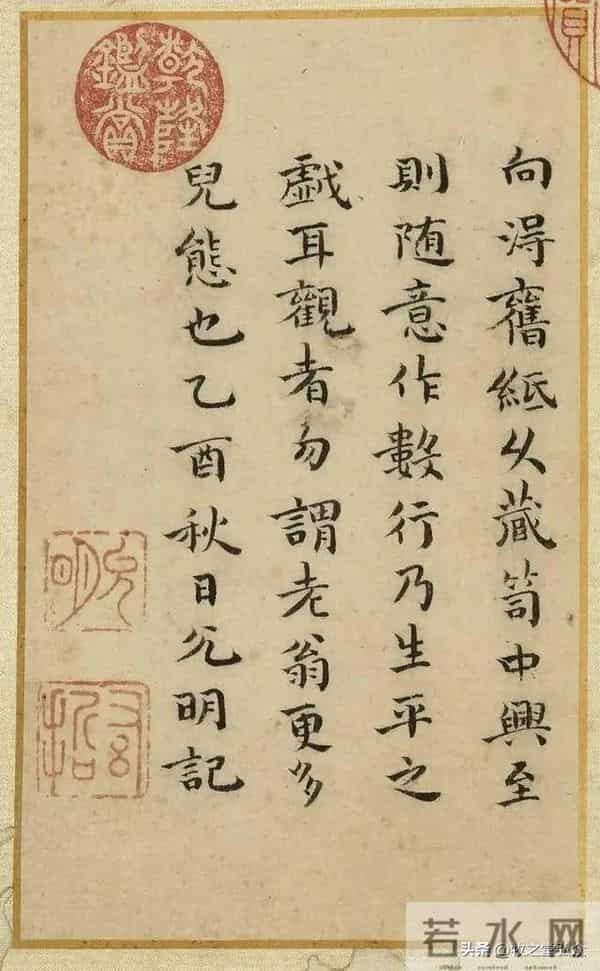 向得舊紙乆藏笥中興至
則随意作數行乃生平之
戯耳觀者勿謂老翁更多
兒態也乙酉秋日允明記
乾隆鑑賞
允明
若水网
头条